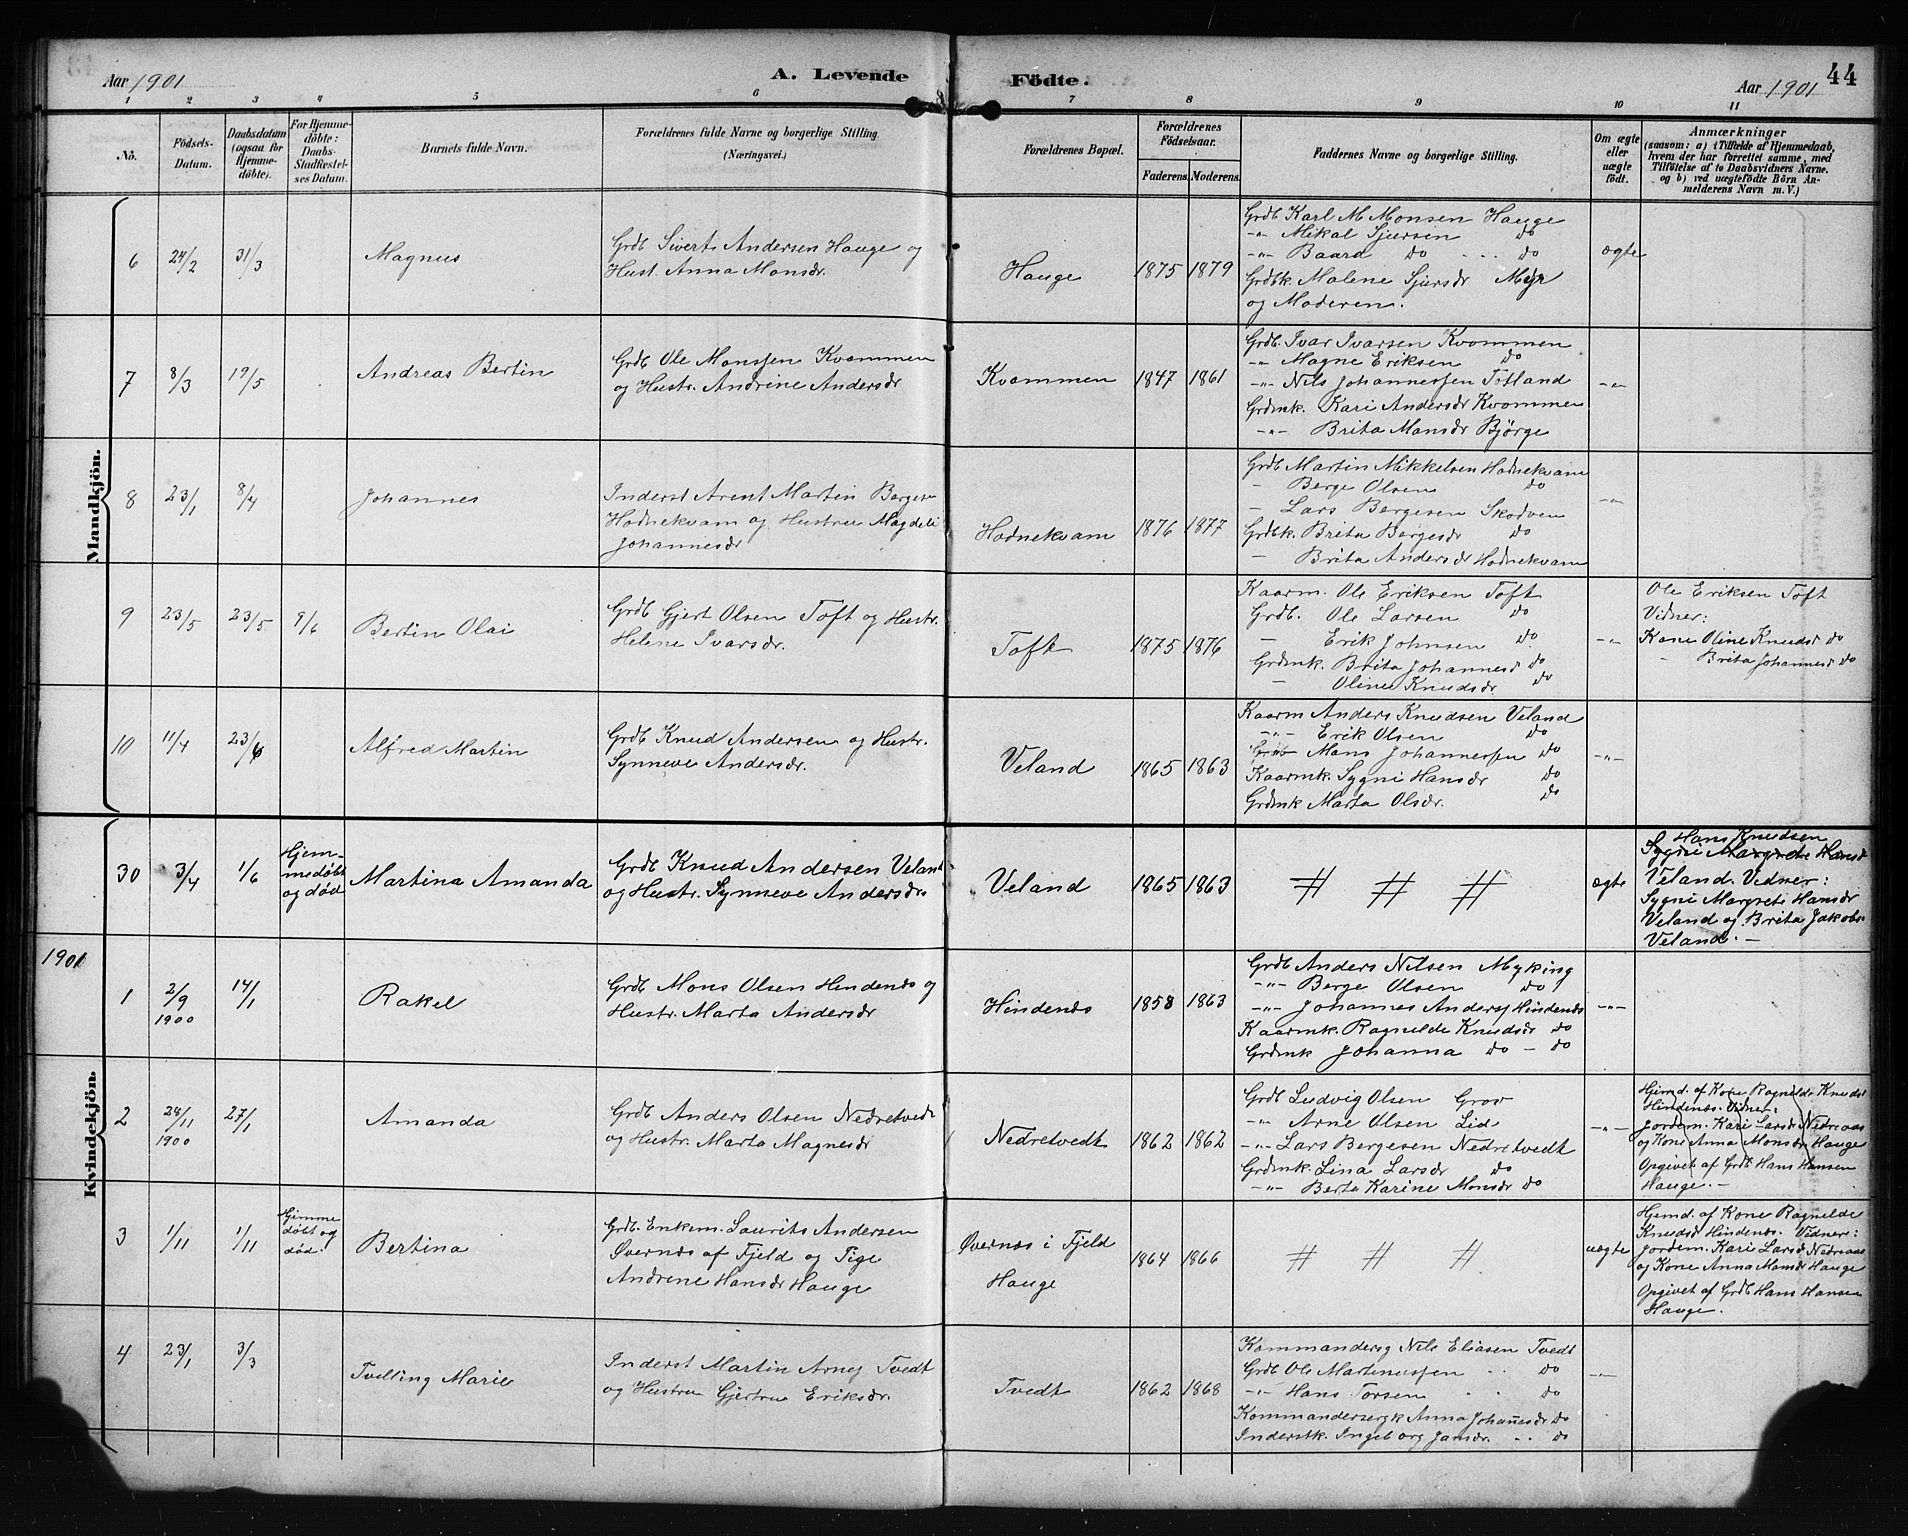 Aar 1901 A. Levende Födte. Aar 1901 44
1 2 3 4 5 6 7 8 9 10 11
No.
Födsels-Datum.
Daabsdatum (ogsaa for Hjemme-döbte).
For Hjemme-döbte: Daabs-Stadfæstel-ses Datum.
Barnets fulde Navn.
Forældrenes fulde Navne og borgerlige Stilling.
(Næringsvei.)
Forældrenes Bopæl.
Forældrenes Födselsaar.
Faderens. Moderens.
Faddernes Navne og borgerlige Stilling.
Om ægte eller uægte födt.
Anmærkninger
(saasom: a) i Tilfælde af Hjemmedaab,
hvem der har forrettet samme, med
Tilföielse af to Daabsvidners Navne.
og b) ved uægtefödte Börn An-
melderens Navn m. V.)
Mandkjön.
6 24/2 31/3 Magnus
Grdb Sivert Andersen Hauge og
Hust. Anna Monsdr.
Hauge 1875 1879
Grdb Karl M Monsen Hauge
-"- Mikal Sjursen Do
-"- Baard Do Do
Grdbk. Malene Sjursdr Myr
og Moderen.
ægte
7 8/3 19/5 Andreas Bertin
Grdb Ole Monssen Kvammen
og Hustr. Andrine Andersdr
Kvammen 1847 1861
Grdb. Ivar Ivarsen Kvammen
-"- Magne Eriksen Do
-"- Nils Johannessen Totland
Grdmk. Kari Andersdr Kvammen
-"- Brita Monsdr Bjørge
-"-
8 23/1 8/4 Johannes
Inderst Arent Martin Bergese
Hodnekvam og Hustru Magdeli
Johannesdr
Hodnekvam 1876 1877
Grdb Martin Mikkelsen Hodnekvam
- Berge Olsen Do
- Lars Bergesen Skodven
Grdbk. Brita Bergesdr Do
- Brita Andersdr Hodnekvam
-"-
9 23/5 23/5 9/6 Bertin Olai
Grdb Gjert Olsen Toft og Hustr.
Helene Ivarsdr.
Toft 1875 1876
Kaarm. Ole Eriksen Toft
Grdb. Ole Larsen Do
- Erik Johnsen Do
Grdmk. Brita Johannesd Do
- Oline Knudsdr Do
-"-
Ole Eriksen Toft
Vidner:
Kone Oline Knudsd Do
- Brita Johannesd Do
10 11/4 23/6 Alfred Martin
Grdb Knud Andersen og Hustr.
Synneve Andersdr.
Veland 1865 1863
Kaarm Anders Knudsen Veland
-"- Erik Olsen Do
Grdb Mons Johannessen Do
Kaarmk. Sygni Hansdr Do
Grdmk Marta Olsdr. Do
-"-
Kvindekjön.
30 3/4 1/6 Hjem-
medøbt
og død
Martina Amanda
Grdb Knud Andersen Veland
og Hustr. Synneve Andersdr
Veland 1865 1863
# # #
ægte
Hans Knudsen
Sygni Margrete Hansd
Veland. Vidner:
Sygni Margrete Hansdr
Veland og Brita Jakobs.
Veland. -
1901
1 2/9 1900 14/1 Rakel
Grdb Mons Olsen Hindenes og
Hustr. Marta Andersdr
Hindenes 1858 1863
Grdb Anders Nilsen Myking
-"- Berge Olsen Do
-"- Johannes Anders Hindenes
Kaarmk. Ragnilde Knudsdr Do
Grdmk Johanna Do - Do
-"-
2 24/11 1900 27/1 Amanda
Grdb Anders Olsen Nedretvedt
og Hustr. Marta Magnesdr
Nedretvedt 1862 1862
Grdb Ludvig Olsen Grov
-"- Arne Olsen Lid
-"- Lars Bergesen Nedretvedt
Grdmk. Lina Larsdr Do
-"- Berta Karine Monsdr Do
-"-
Hjemd. af Kone Ragnilde Knudsd
Hindenes. Vidner:
Jordem. Kari Larsd Nedreaas
og Kone Anna Monsdr Hauge
Opgivet af Grdb Hans Hansen
Hauge. -
3 1/11 1/11 Hjemme
døbt og
død.
Bertina
Grdb. Enkem. Laurits Andersen
Øvernes af Fjeld og Pige
Andrene Hansdr Hauge
Øvernes i Fjeld
Hauge
1864 1866
# # #
uægte
Hjemd. af Kone Ragnilde
Knudsd Hindenes. Vidner:
Jordem. Kari Larsd Nedreaas
og Kone Anna Monsdr Hauge
Opgivet af Grdb Hans Hansen
Hauge.
4 23/1 3/3 Tvelling Marie
Inderst Martin Arnes Tvedt
og Hustru Gjertru Eriksdr.
Tvedt 1862 1868
Kommandersg Nils Eliasen Tvedt
Grdb Ole Martinussen Do
-"- Hans Torsen Do
Kommandersergk Anna Johansdr Do
Inderstk. Ingeborg Jansdr. Do
-"-